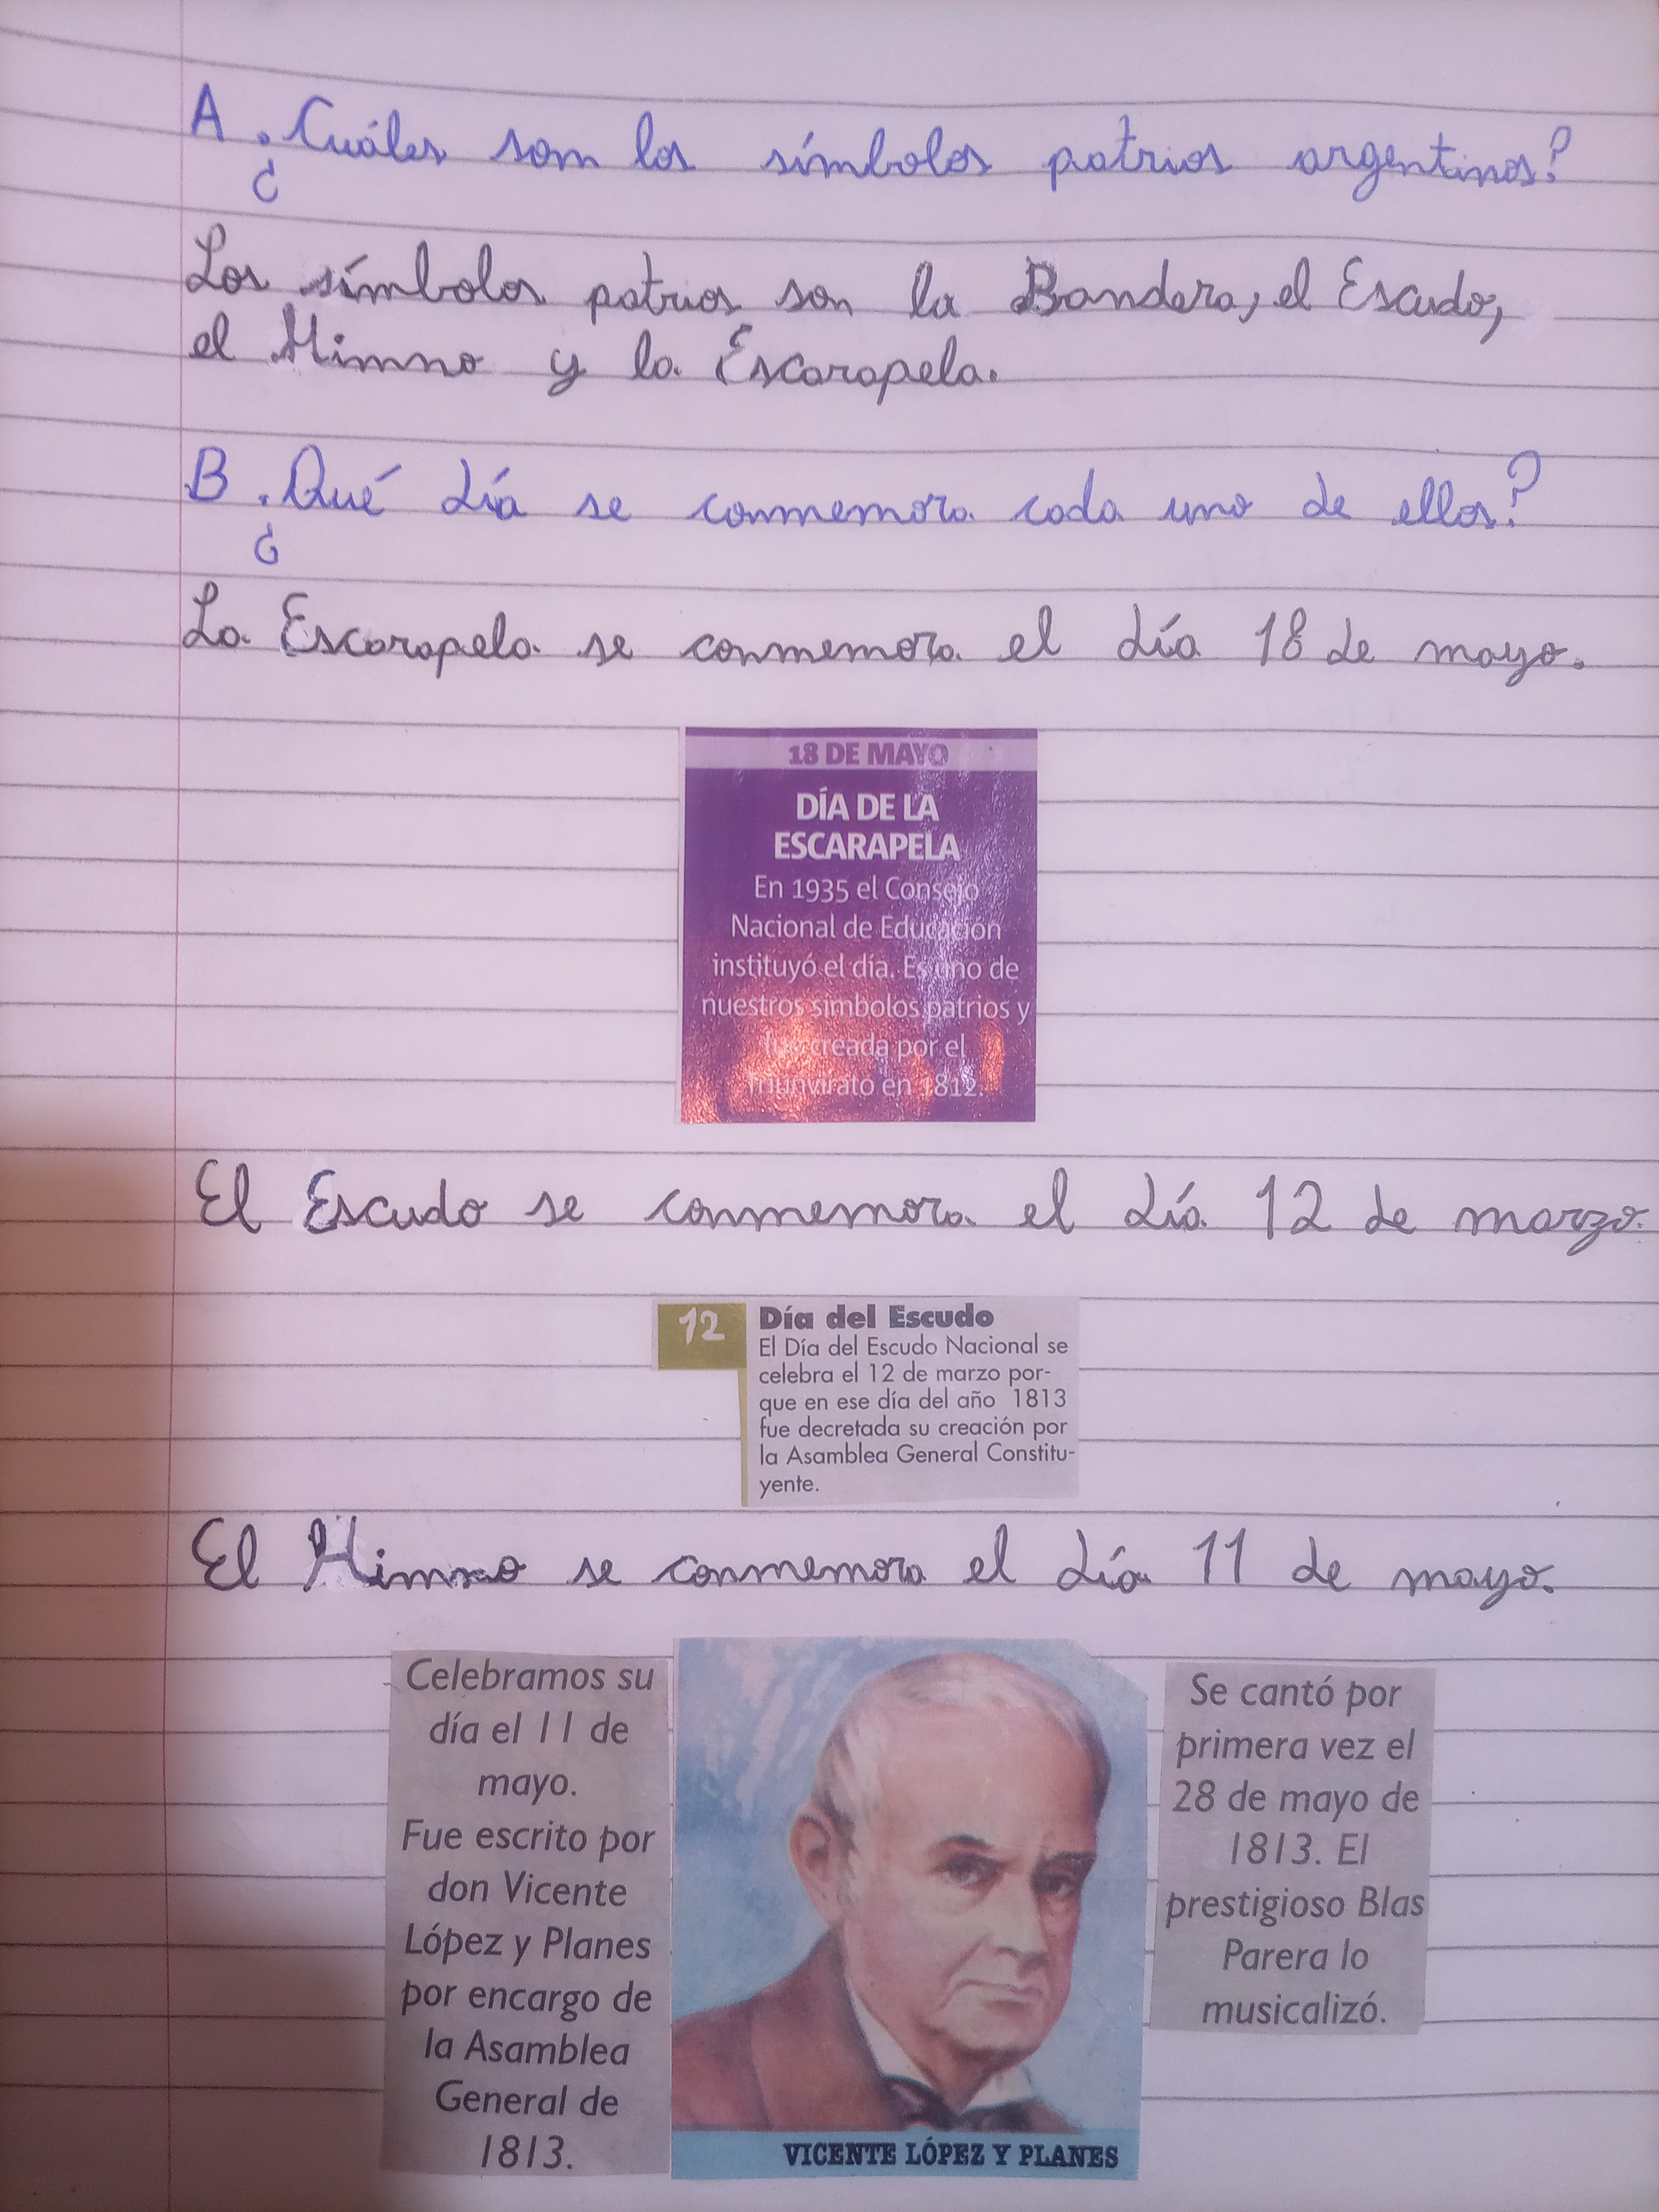 A ¿Cuáles son los símbolos patrios argentinos?
Los símbolos patrios son la Bandera, el Escudo,
el Himno y la Escarapela.
B ¿Qué día se conmemora cada uno de ellos?
La Escarapela se conmemora el día 18 de mayo.
18 DE MAYO
DÍA DE LA
ESCARAPELA
En 1935 el Consejo
Nacional de Educación
instituyó el día. Es uno de
nuestros símbolos patrios y
fue creada por el
Triunvirato en 1812.
El Escudo se conmemora el día 12 de marzo.
12
Día del Escudo
El Día del Escudo Nacional se
celebra el 12 de marzo por-
que en ese día del año 1813
fue decretada su creación por
la Asamblea General Constitu-
yente.
El Himno se conmemora el día 11 de mayo.
Celebramos su
día el 11 de
mayo.
Fue escrito por
don Vicente
López y Planes
por encargo de
la Asamblea
General de
1813.
VICENTE LÓPEZ Y PLANES
Se cantó por
primera vez el
28 de mayo de
1813. El
prestigioso Blas
Parera lo
musicalizó.